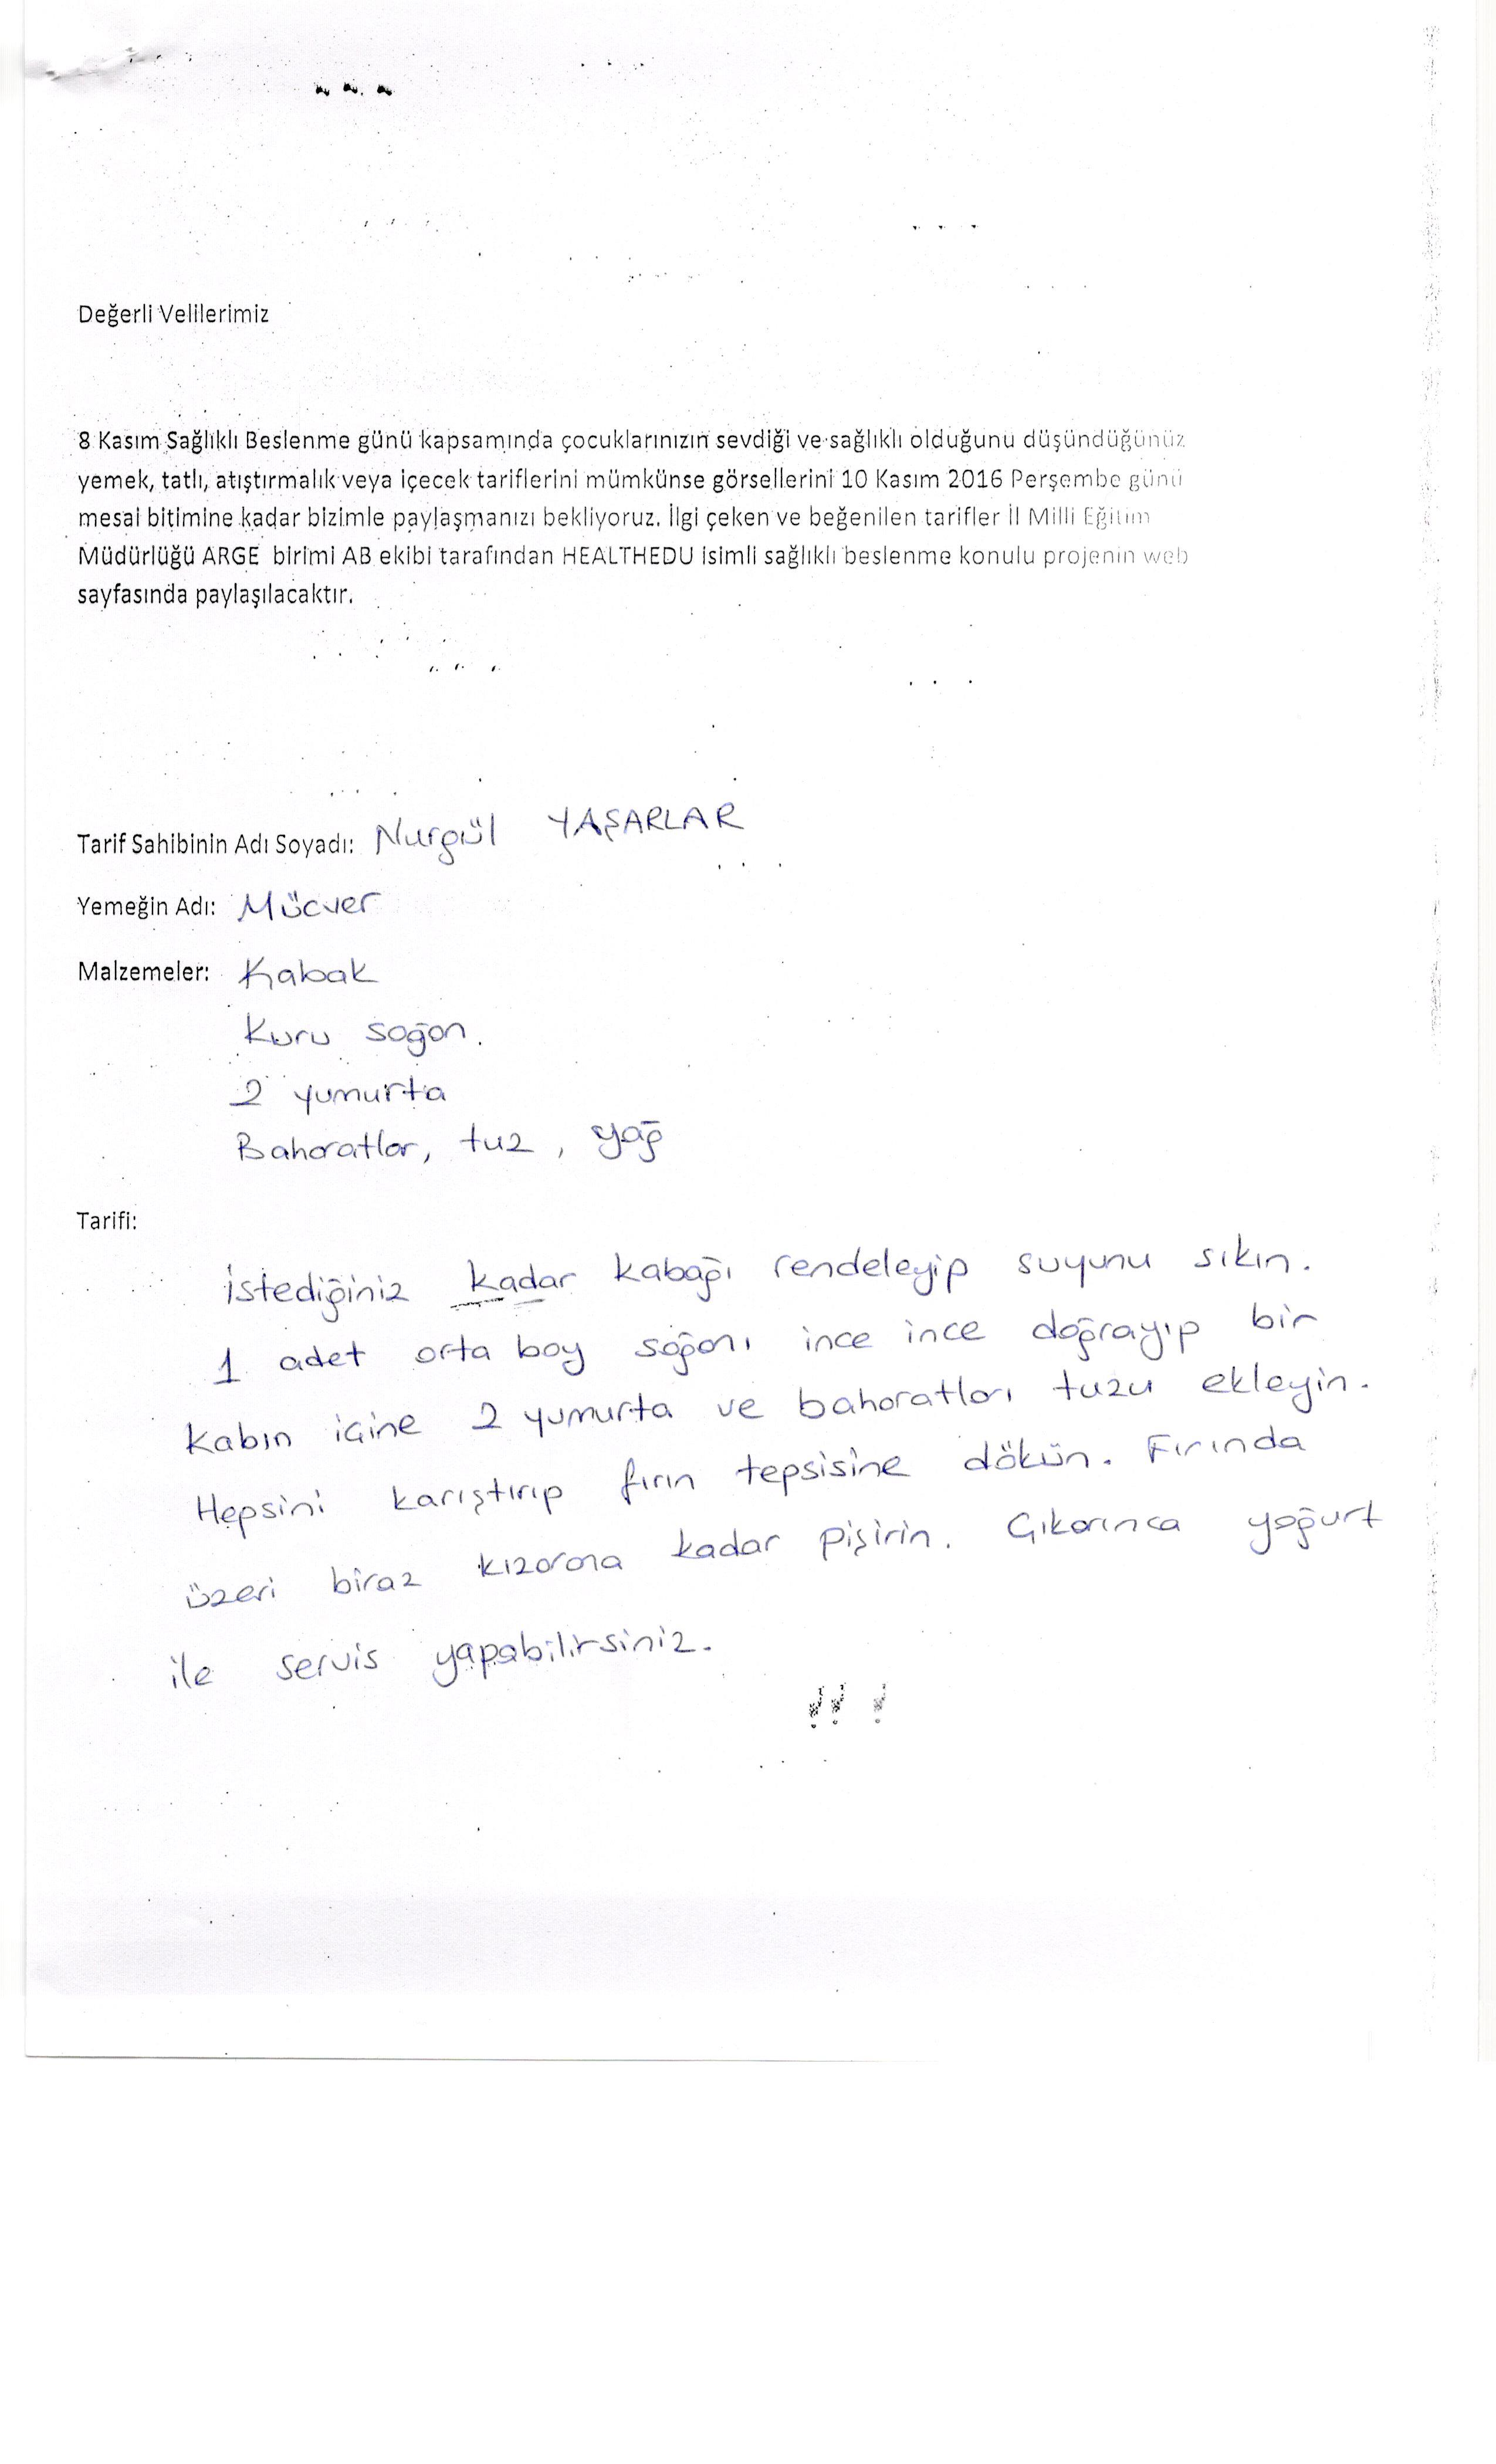 Değerli Velilerimiz
8 Kasım Sağlıklı Beslenme günü kapsamında çocuklarınızın sevdiği ve sağlıklı olduğunu düşündüğünüz
yemek, tatlı, atıştırmalık veya içecek tariflerini mümkünse görsellerini 10 Kasım 2016 Perşembe günü
mesai bitimine kadar bizimle paylaşmanızı bekliyoruz. İlgi çeken ve beğenilen tarifler İl Milli Eğitim
Müdürlüğü ARGE birimi AB ekibi tarafından HEALTHEDU isimli sağlıklı beslenme konulu projenin web
sayfasında paylaşılacaktır.
Tarif Sahibinin Adı Soyadı: Nurgül YAŞARLAR
Yemeğin Adı: Mücver
Malzemeler: Kabak
Kuru soğan.
2 yumurta
Baharatlar, tuz, yağ
Tarifi:
İstediğiniz kadar kabağı rendeleyip suyunu sıkın.
1 adet orta boy soğanı ince ince doğrayıp bir
kabın içine 2 yumurta ve baharatları tuzu ekleyin.
Hepsini karıştırıp fırın tepsisine dökün. Fırında
üzeri biraz kızarana kadar pişirin. Çıkarınca yoğurt
ile servis yapabilirsiniz.